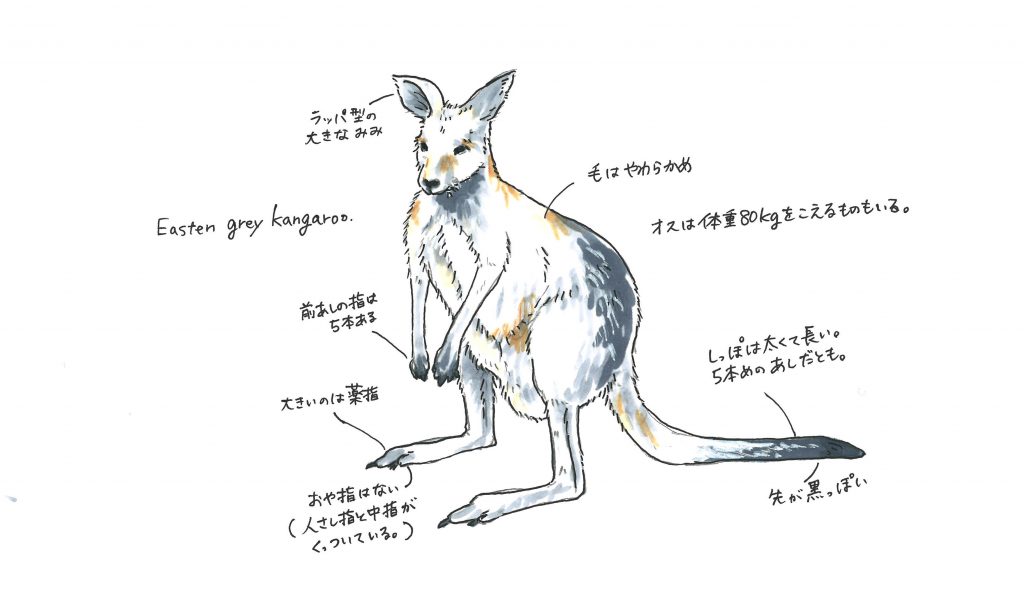 ラッパ型の
大きなみみ
毛はやわらかめ
Easten grey kangaroo.
オスは体重80kgをこえるものもいる。
前あしの指は
5本ある
しっぽは太くて長い。
5本めのあしだとも。
大きいのは薬指
先が黒っぽい
おや指はない
(人さし指と中指が
くっついている。)